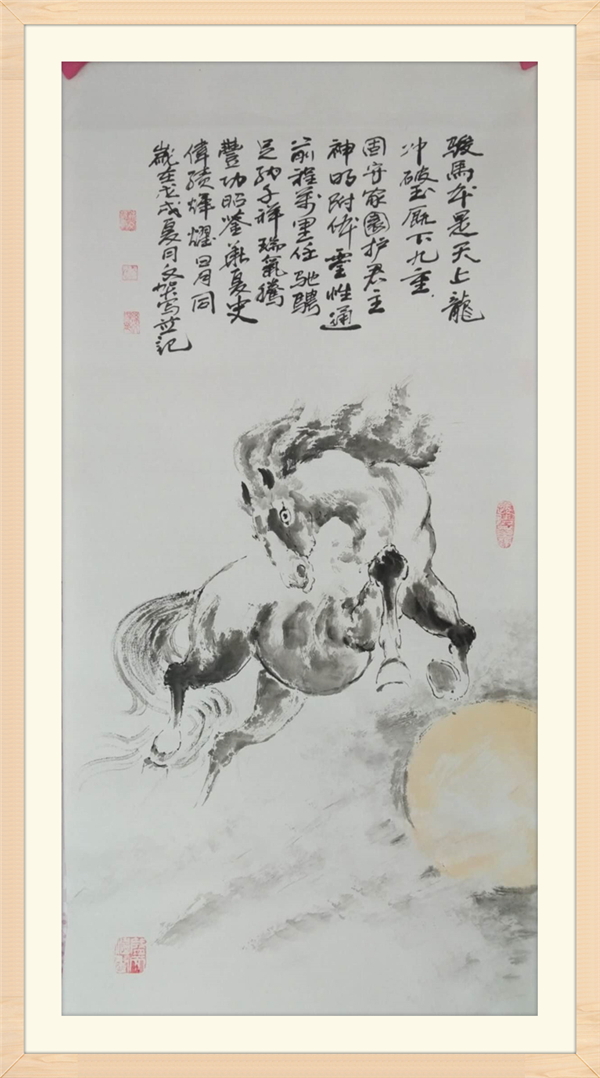 骏馬本是天上龍
冲破玉厩下九重
固守家園护君主
神明附体靈性通
前程萬里任驰騁
足踏千祥瑞氣騰
豐功昭鉴華夏史
偉績輝耀日月同
歲在戊戌夏月文 寫并記